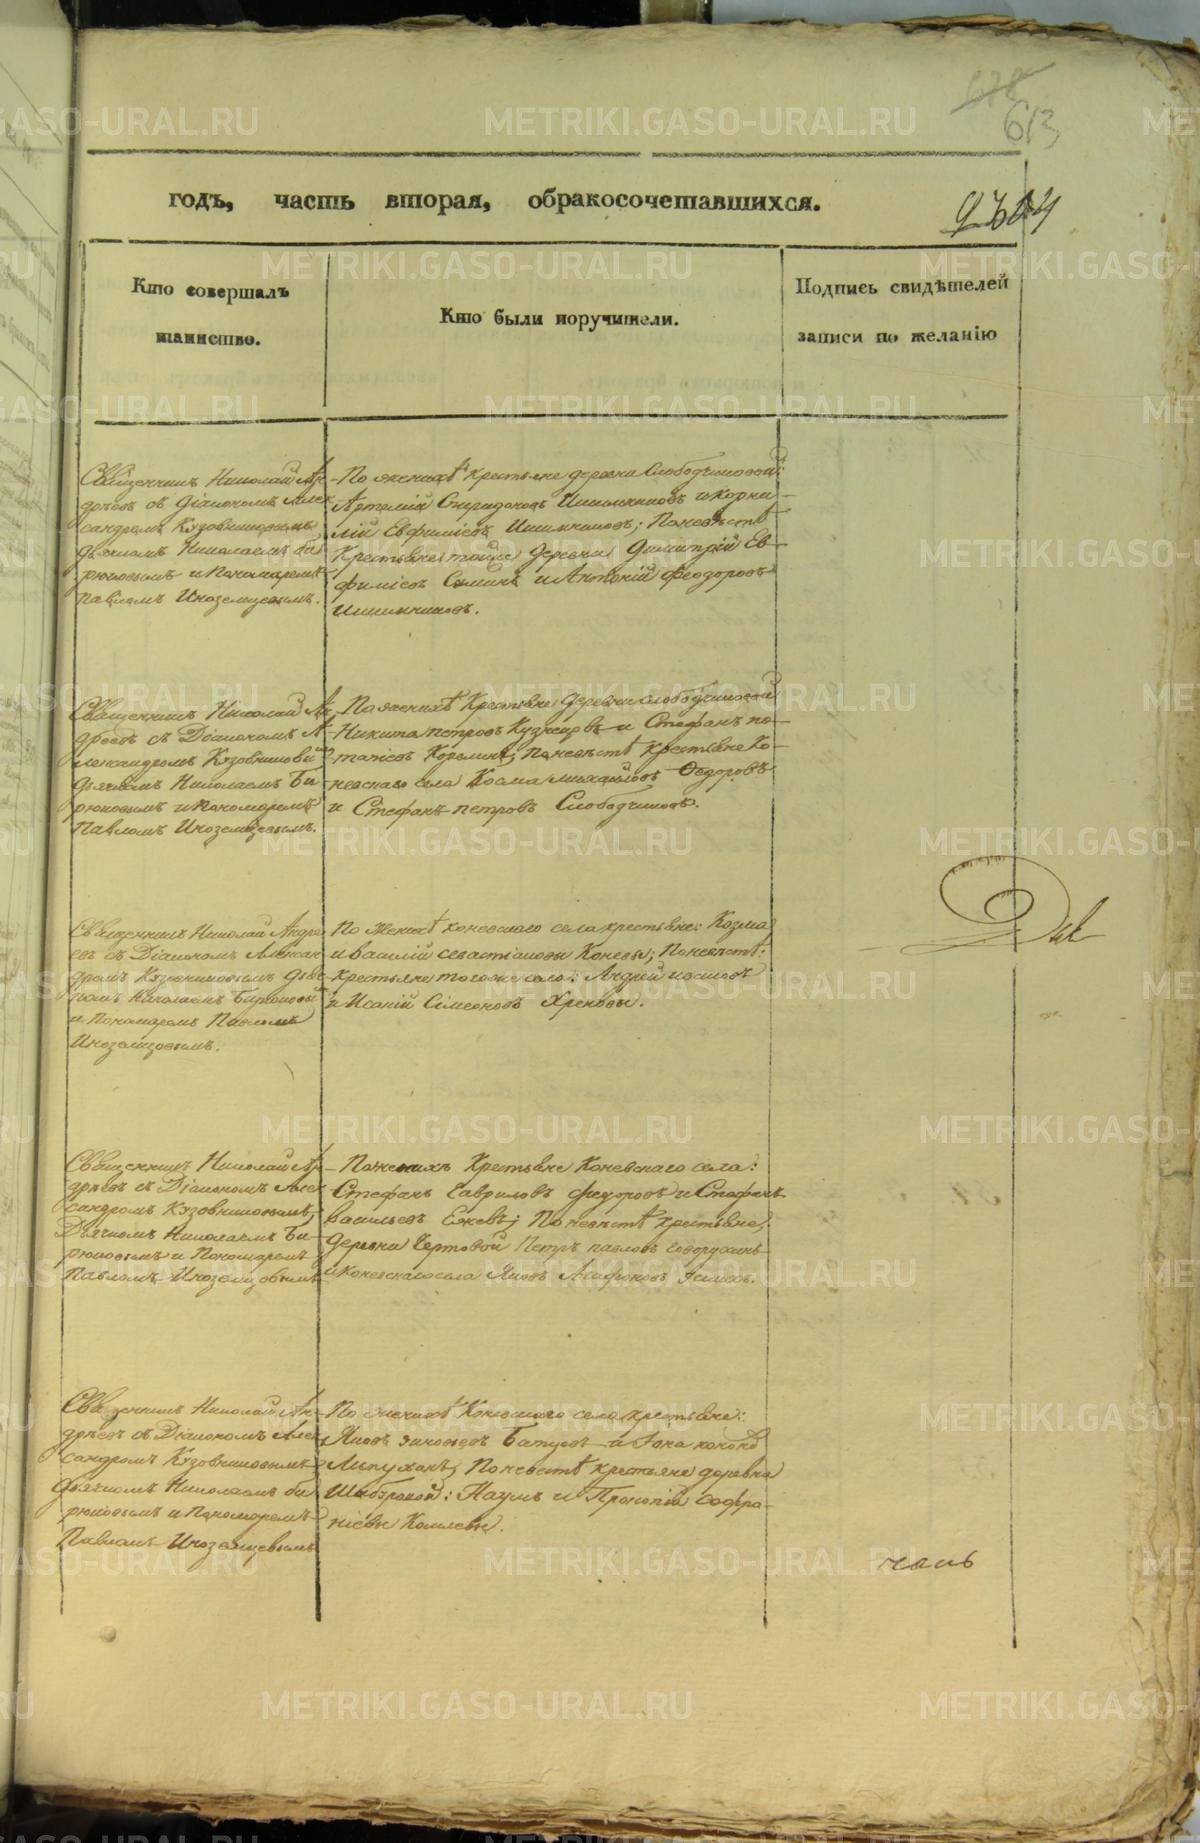 678
613
годъ, часть вторая, обракосочетавшихся.
Кто совершалъ
таинство.
Кто были поручители.
Подпись свидѣтелей
записи по желанію
Священникъ Николай Ан
дреевъ съ Діакономъ Алек
сандромъ Кузовниковымъ,
дьячкомъ Николаемъ Би
рюковымъ и Пономаремъ
Павломъ Иноземцевымъ.
По женихѣ крестьяне деревни Слободчиковой:
Артемій Спиридоновъ и Корни
лій Евфиміевъ; По невѣстѣ
Крестьяне тойже деревни Димитрій Ев
фиміевъ и Антоній Феодоровъ
Священникъ Николай Ан
дреевъ съ Діакономъ А
лександромъ Кузовниковы
дьячкомъ Николаемъ Би
рюковымъ и Пономаремъ
Павломъ Иноземцевымъ.
По женихѣ Крестьяне деревни Слободчиковой
Никита Петровъ Кузнецовъ и Стефанъ По
таповъ Корелинъ; По невѣстѣ Крестьяне Ко
невскаго села Косма Михайловъ Федоровъ
и Стефанъ Петровъ Слободчиковъ.
Священникъ Николай Андре
евъ съ Діакономъ Алексан
дромъ Кузовниковымъ дья
чкомъ Николаемъ Бирюковы
и Пономаремъ Павломъ
Иноземцовымъ.
По женихѣ коневскаго села крестьяне: Козма
и Василій Севастіановы Коневы; По невѣстѣ:
крестьяне тогоже села: Андрей
и Исакій Симеоновъ Хреновы.
Священникъ Николай Ан
дреевъ съ Діакономъ Алек
сандромъ Кузовниковымъ,
Дьячкомъ Николаемъ Би
рюковымъ и Пономаремъ
Павломъ Иноземцовымъ
По женихѣ Крестьяне Коневскаго села:
Стефанъ Гавриловъ Федоровъ и Стефанъ
Васильевъ Ежевъ; По невѣстѣ крестьяне,
деревни Чертовой Петръ Павловъ
и коневскаго села Яковъ
Священникъ Николай Ан
дреевъ съ Діакономъ Алек
сандромъ Кузовниковымъ
Дьячкомъ Николаемъ Би
рюковымъ и Пономаремъ
Павломъ Иноземцевымъ
По женихѣ Коневскаго села крестьяне:
Яковъ Зиновьевъ и Іона
По невѣстѣ крестьяне деревни
Шабровой: Наумъ и Прокопій Софро
ніевы
METRIKI.GASO-URAL.RU